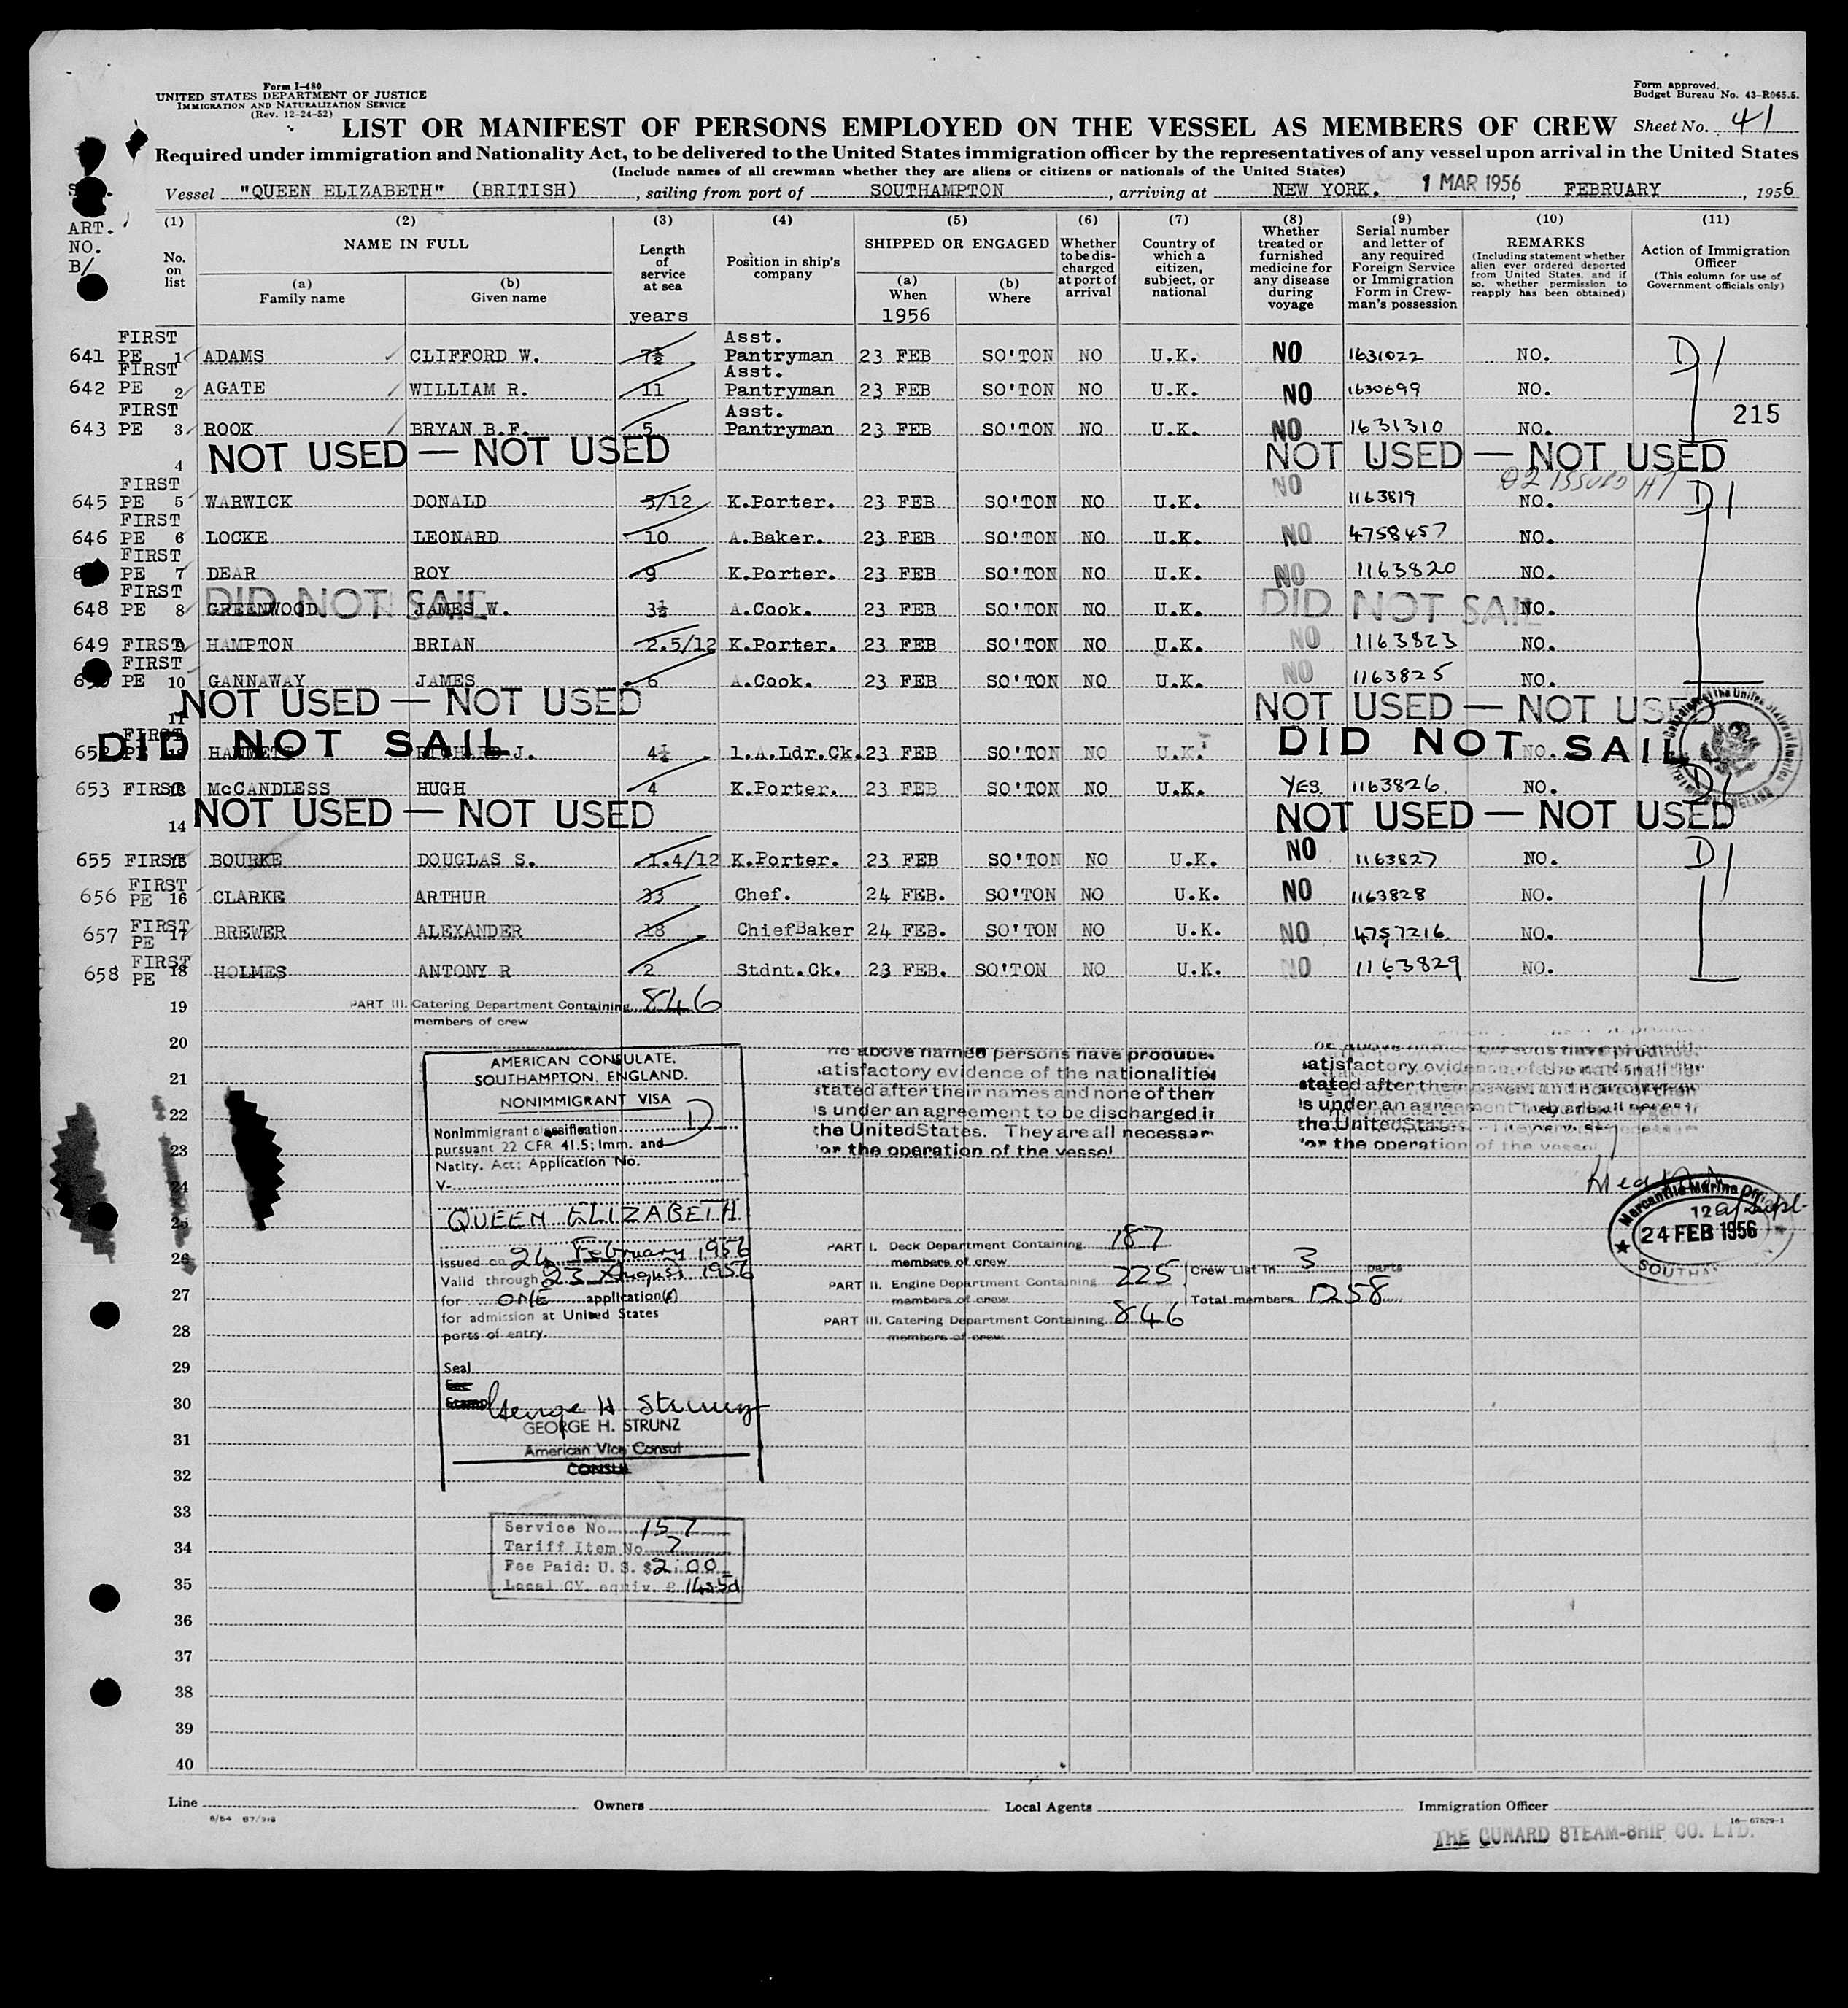 Form I-480
UNITED STATES DEPARTMENT OF JUSTICE
IMMIGRATION AND NATURALIZATION SERVICE
(Rev. 12-24-52)
Form approved.
Budget Bureau No. 43-R065.5.
LIST OR MANIFEST OF PERSONS EMPLOYED ON THE VESSEL AS MEMBERS OF CREW Sheet No. 41
Required under immigration and Nationality Act, to be delivered to the United States immigration officer by the representatives of any vessel upon arrival in the United States
(Include names of all crewman whether they are aliens or citizens or nationals of the United States)
Vessel "QUEEN ELIZABETH" (BRITISH), sailing from port of SOUTHAMPTON, arriving at NEW YORK. 1 MAR 1956, FEBRUARY, 1956
ART.
NO.
B/
(1) (2) (3) (4) (5) (6) (7) (8) (9) (10) (11)
No. on list
NAME IN FULL
(a) Family name
(b) Given name
Length of service at sea
years
Position in ship's company
SHIPPED OR ENGAGED
(a) When
1956
(b) Where
Whether to be discharged at port of arrival
Country of which a citizen, subject, or national
Whether treated or furnished medicine for any disease during voyage
Serial number and letter of any required Foreign Service or Immigration Form in Crewman's possession
REMARKS
(Including statement whether alien ever ordered deported from United States, and if so, whether permission to reapply has been obtained)
Action of Immigration Officer
(This column for use of Government officials only)
641 FIRST PE 1 ADAMS CLIFFORD W. 7½ Asst. Pantryman 23 FEB SO'TON NO U.K. NO 1631022 NO. D1
642 FIRST PE 2 AGATE WILLIAM R. 11 Asst. Pantryman 23 FEB SO'TON NO U.K. NO 1630699 NO.
215
643 FIRST PE 3 ROOK BRYAN B.F. 5 Asst. Pantryman 23 FEB SO'TON NO U.K. NO 1631310 NO.
4 NOT USED — NOT USED NOT USED — NOT USED
645 FIRST PE 5 WARWICK DONALD 5/12 K.Porter. 23 FEB SO'TON NO U.K. NO 1163819 NO. D1
646 FIRST PE 6 LOCKE LEONARD 10 A.Baker. 23 FEB SO'TON NO U.K. NO 4758457 NO.
FIRST PE 7 DEAR ROY 9 K.Porter. 23 FEB SO'TON NO U.K. NO 1163820 NO.
648 FIRST PE 8 GREENWOOD JAMES W. 3½ A.Cook. 23 FEB SO'TON NO U.K. NO.
DID NOT SAIL DID NOT SAIL
649 FIRST 9 HAMPTON BRIAN 2.5/12 K.Porter. 23 FEB SO'TON NO U.K. NO 1163823 NO.
FIRST PE 10 GANNAWAY JAMES 6 A.Cook. 23 FEB SO'TON NO U.K. NO 1163825 NO.
11 NOT USED — NOT USED NOT USED — NOT USED
652 FIRST PE 12 RICHARD J. 4½ 1.A.Ldr.Ck. 23 FEB SO'TON NO U.K. NO.
DID NOT SAIL DID NOT SAIL
653 FIRST 13 McCANDLESS HUGH 4 K.Porter. 23 FEB SO'TON NO U.K. YES. 1163826. NO. D1
14 NOT USED — NOT USED NOT USED — NOT USED
655 FIRST 15 BOURKE DOUGLAS S. 1.4/12 K.Porter. 23 FEB SO'TON NO U.K. NO 1163827 NO. D1
656 FIRST PE 16 CLARKE ARTHUR 33 Chef. 24 FEB. SO'TON NO U.K. NO 1163828 NO.
657 FIRST PE 17 BREWER ALEXANDER 18 ChiefBaker 24 FEB. SO'TON NO U.K. NO 4757216. NO.
658 FIRST PE 18 HOLMES ANTONY R 2 Stdnt.Ck. 23 FEB. SO'TON NO U.K. NO 1163829 NO.
19 PART III. Catering Department Containing 846
members of crew
20
21
22
23
24
25
26
27
28
29
30
31
32
33
34
35
36
37
38
39
40
AMERICAN CONSULATE,
SOUTHAMPTON, ENGLAND.
NONIMMIGRANT VISA
Nonimmigrant classification D
pursuant 22 CFR 41.5; Imm. and
Natlty. Act; Application No.
V-
QUEEN ELIZABETH
Issued on 24 February 1956
Valid through 23 August 1956
for ONE application(s)
for admission at United States
ports of entry.
Seal
George H Strunz
GEORGE H. STRUNZ
American Vice Consul
CONSUL
Service No. 157
Tariff Item No. 7
Fee Paid: U. S. $2.00
Local CY. equiv. 14s5d
above named persons have produce
atisfactory evidence of the nationalitie
stated after their names and none of them
is under an agreement to be discharged in
the UnitedStates. They are all necessar
or the operation of the vessel
atisfactory
stated after their
is under an agreement
the UnitedStates.
or the operation of the vessel
PART I. Deck Department Containing 187
members of crew
PART II. Engine Department Containing 225
members of crew
PART III. Catering Department Containing 846
members of crew
Crew List in 3 parts
Total members 1258
Mercantile Marine Office
24 FEB 1956
Line
Owners
Local Agents
Immigration Officer
16-67829-1
THE CUNARD STEAM-SHIP CO. LTD.